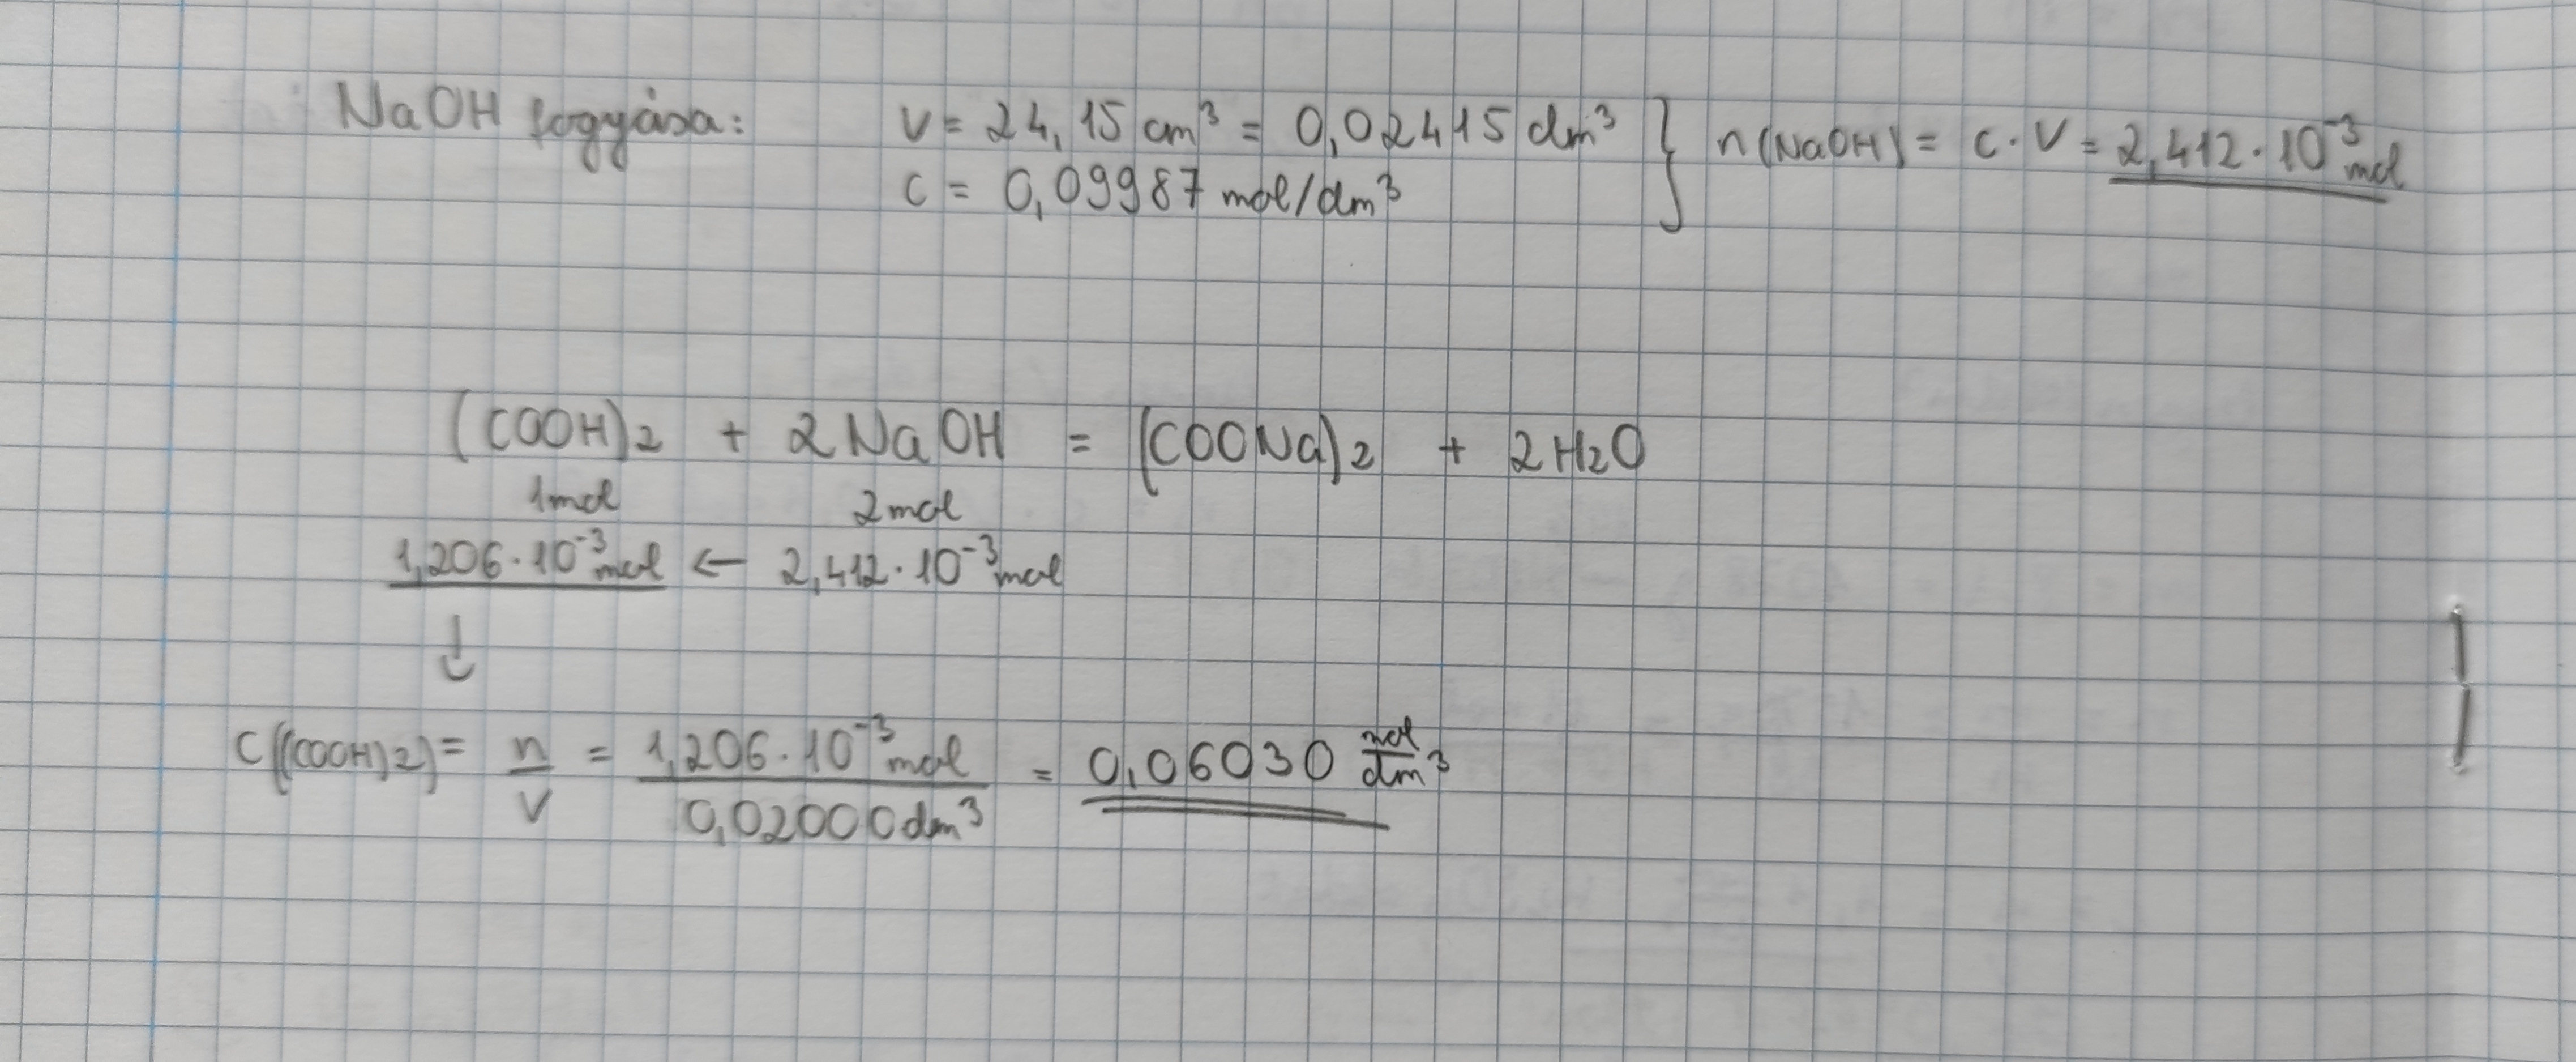 NaOH fogyása: V = 24,15 cm³ = 0,02415 dm³ } n(NaOH) = c · V = 2,412 · 10⁻³ mol
c = 0,09987 mol/dm³
(COOH)₂ + 2 NaOH = (COONa)₂ + 2 H₂O
1 mol 2 mol
1,206 · 10⁻³ mol ← 2,412 · 10⁻³ mol
↓
c((COOH)₂) = n/V = 1,206 · 10⁻³ mol / 0,02000 dm³ = 0,06030 mol/dm³